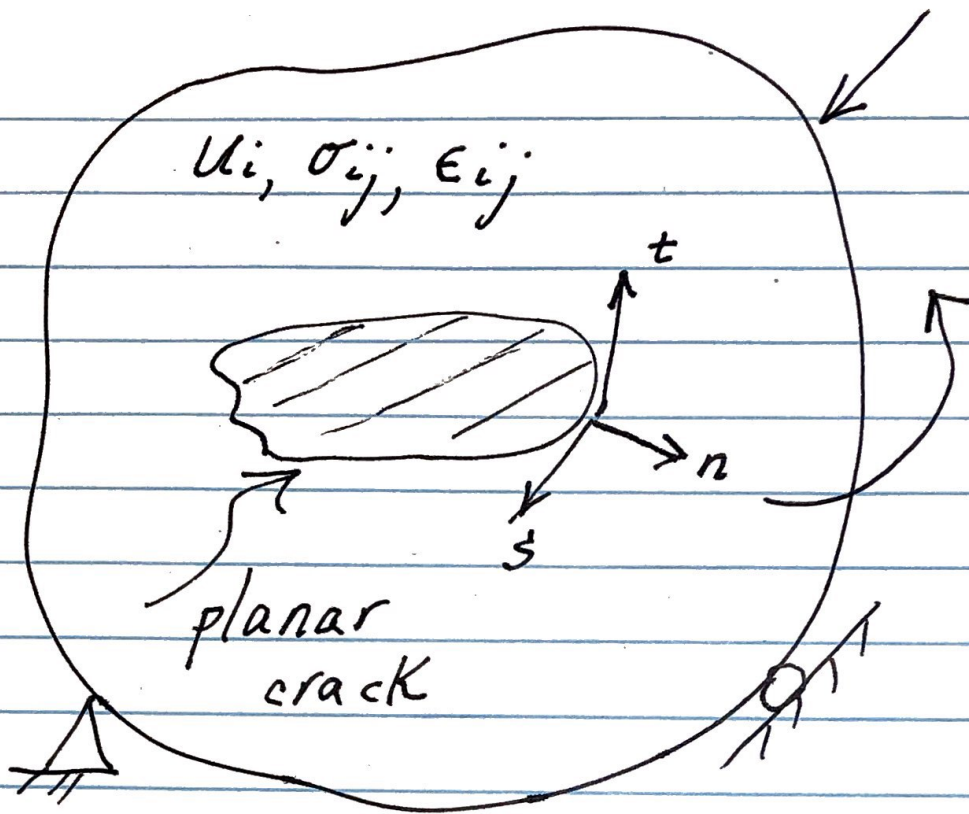 Ui, σij, εij
t
n
s
planar
crack